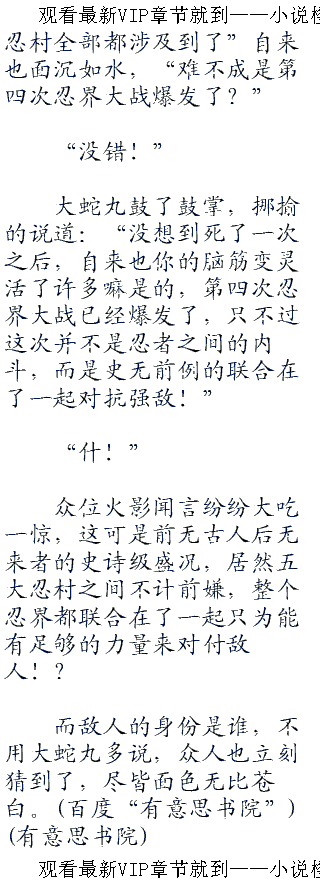 观看最新VIP章节就到——小说
忍村全部都涉及到了”自来
也面沉如水，“难不成是第
四次忍界大战爆发了？”
“没错！”
大蛇丸鼓了鼓掌，揶揄
的说道：“没想到死了一次
之后，自来也你的脑筋变灵
活了许多嘛是的，第四次忍
界大战已经爆发了，只不过
这次并不是忍者之间的内
斗，而是史无前例的联合在
了一起对抗强敌！”
“什！”
众位火影闻言纷纷大吃
一惊，这可是前无古人后无
来者的史诗级盛况，居然五
大忍村之间不计前嫌，整个
忍界都联合在了一起只为能
有足够的力量来对付敌
人！？
而敌人的身份是谁，不
用大蛇丸多说，众人也立刻
猜到了，尽皆面色无比苍
白。(百度“有意思书院”)
(有意思书院)
观看最新VIP章节就到——小说